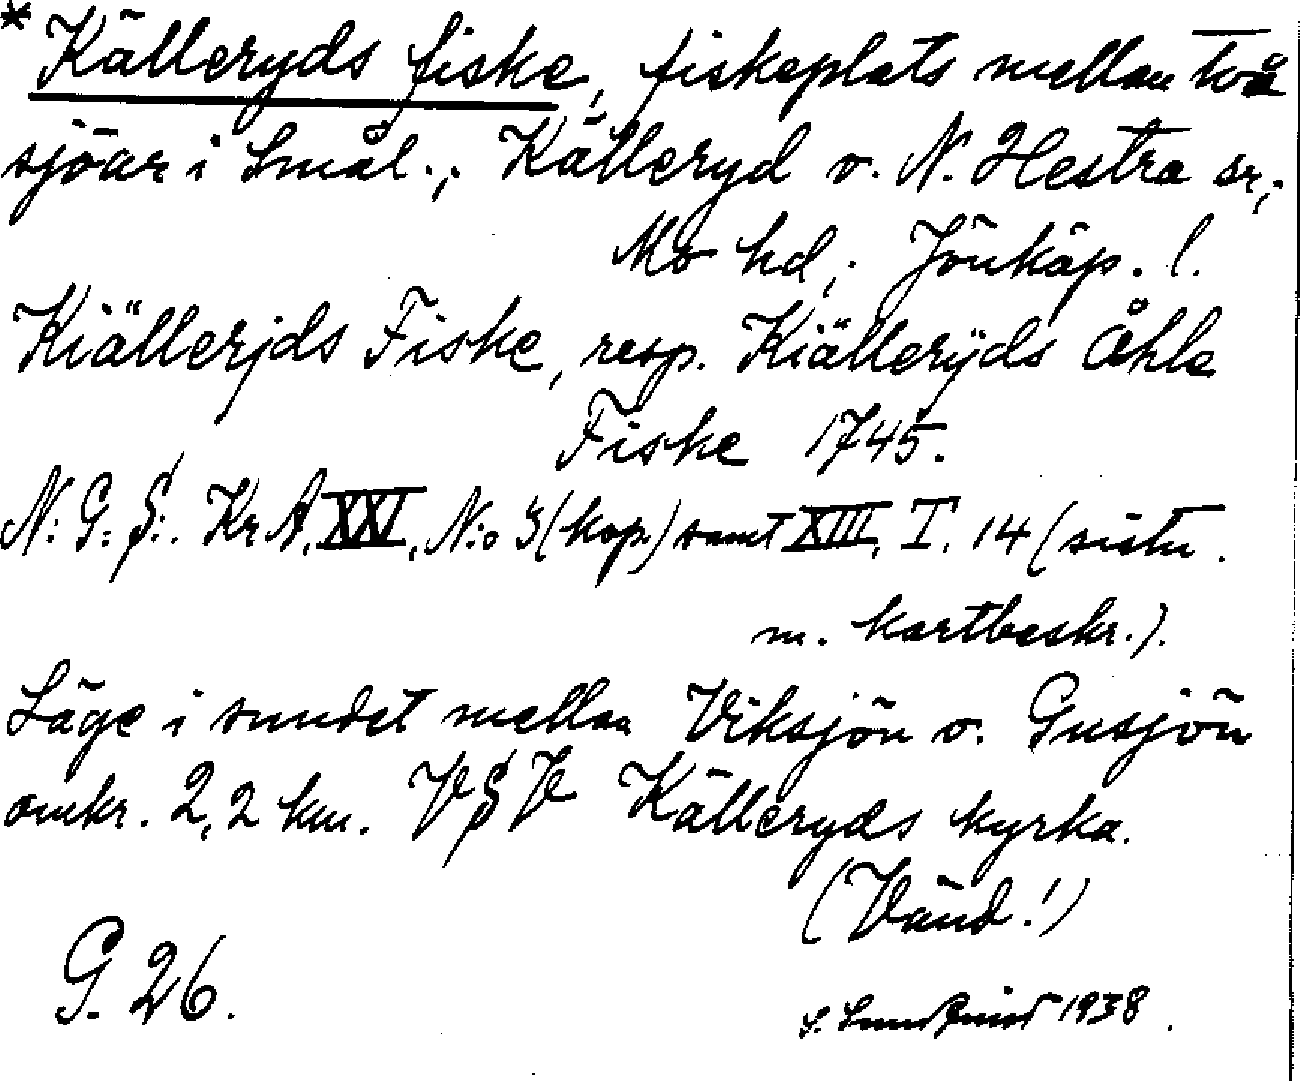 * Källeryds fiske, fiskeplats mellan två
sjöar i Smål., Källeryd o. N. Hestra sr,
Mo hd, Jönköp. l.
Kiällerjds Fiske, resp. Kiällerÿds Åhle
Fiske 1745.
N. G. S. Kr A. XXI, N:o 3 (kop.) samt XIII, I. 14 (sistn.
m. kartbeskr.).
Läge i sundet mellan Viksjön o. Gusjön
omkr. 2,2 km. VSV Källeryds kyrka.
(Vänd!)
G. 26.
1938.